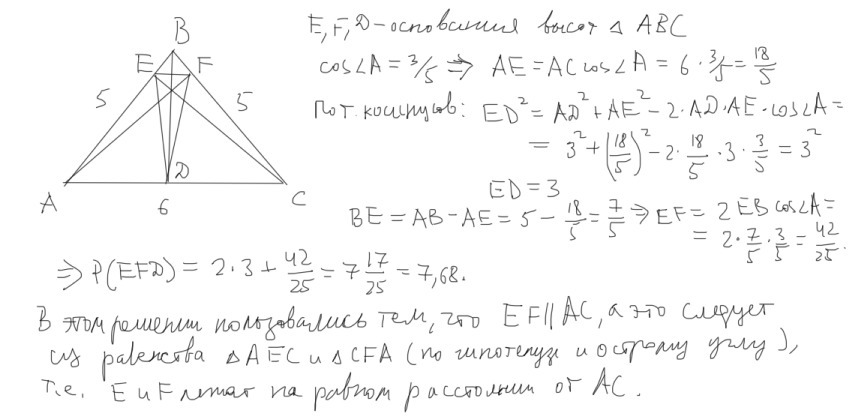 E, F, D - основания высот △ ABC
B
E F
cos∠A = 3/5 ⇒ AE = AC cos∠A = 6 · 3/5 = 18/5
5 5
По т. косинусов: ED² = AD² + AE² - 2·AD·AE·cos∠A =
= 3² + (18/5)² - 2 · 18/5 · 3 · 3/5 = 3²
D
ED = 3
A 6 C
BE = AB - AE = 5 - 18/5 = 7/5 ⇒ EF = 2 EB cos∠A =
= 2 · 7/5 · 3/5 = 42/25.
⇒ P(EFD) = 2·3 + 42/25 = 7 17/25 = 7,68.
В этом решении пользовались тем, что EF || AC, а это следует
из равенства △ AEC и △ CFA (по гипотенузе и острому углу),
т.е. E и F лежат на равном расстоянии от AC.